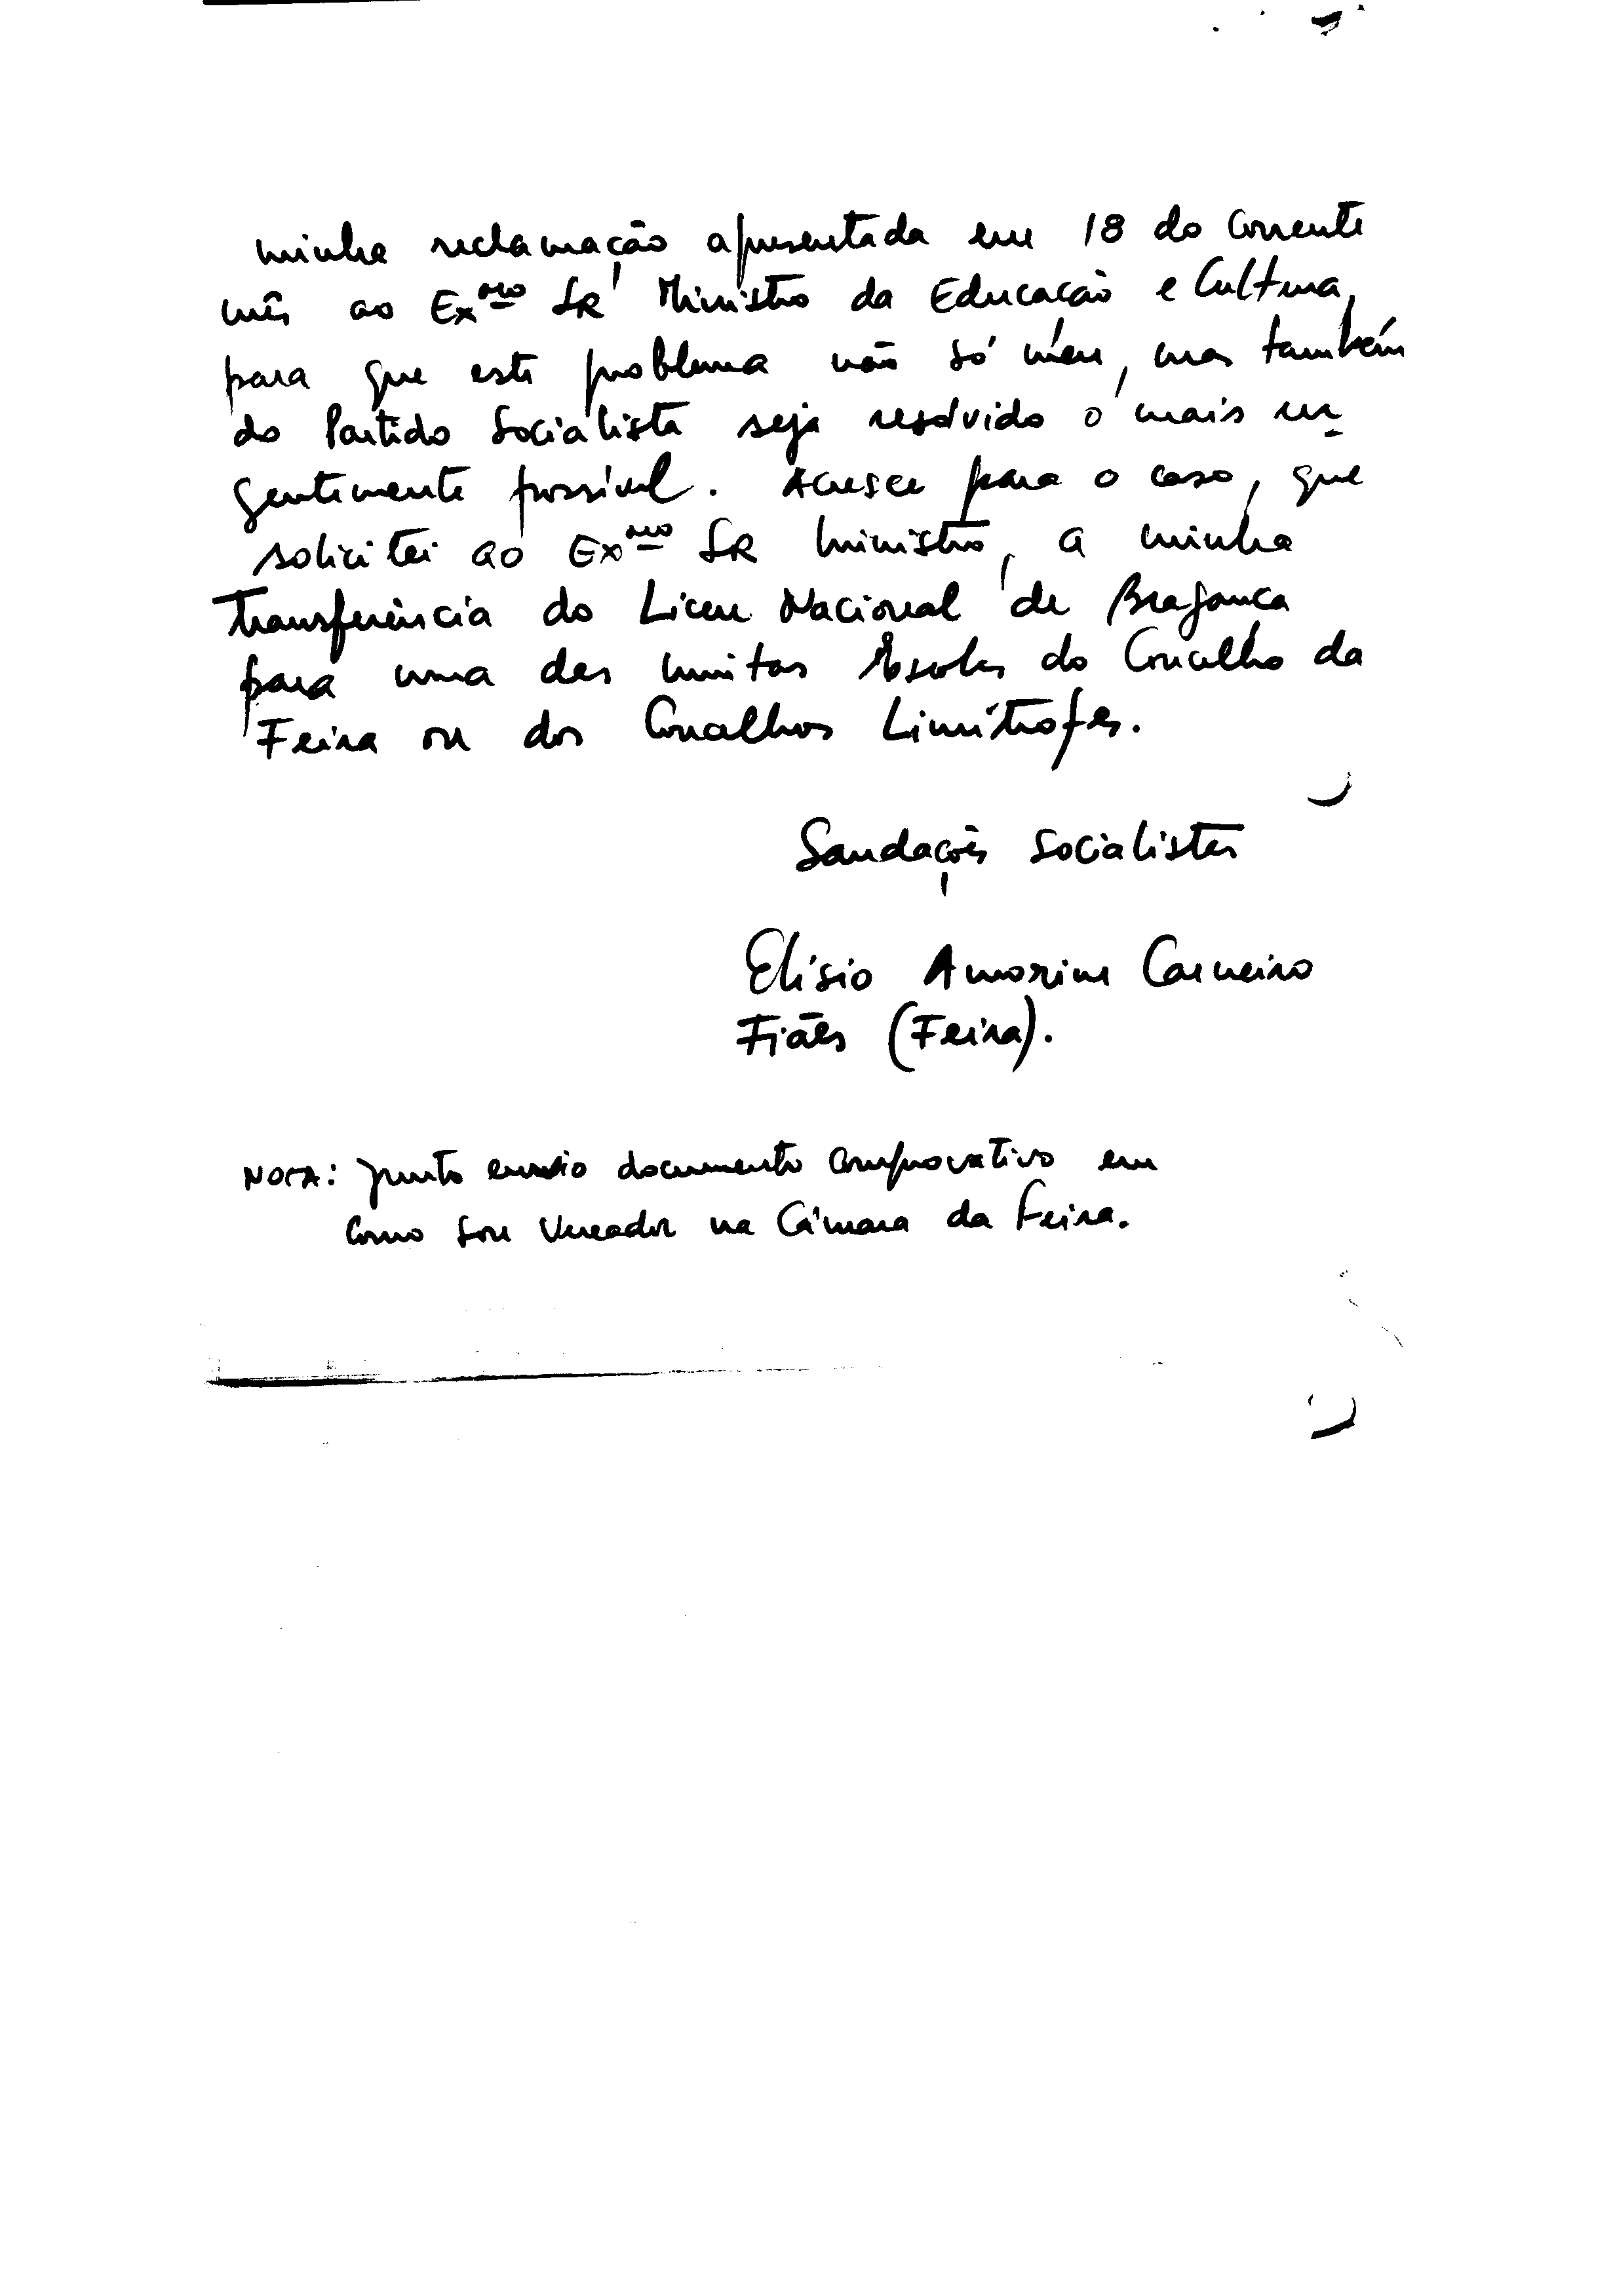 minha reclamação apresentada em 18 do corrente
mês ao Exmo SR Ministro da Educação e Cultura,
para que este problema não só meu, mas também
do Partido Socialista seja resolvido o mais ur-
gentemente possível. Acresce para o caso, que
solicitei ao Exmo SR Ministro, a minha
Transferência do Liceu Nacional de Bragança
para uma das muitas Escolas do Concelho da
Feira ou dos Concelhos Limítrofes.
Saudações Socialistas
Elísio Amorim Carneiro
Fiães (Feira).
NOTA: junto envio documento comprovativo em
como sou Vereador na Câmara da Feira.